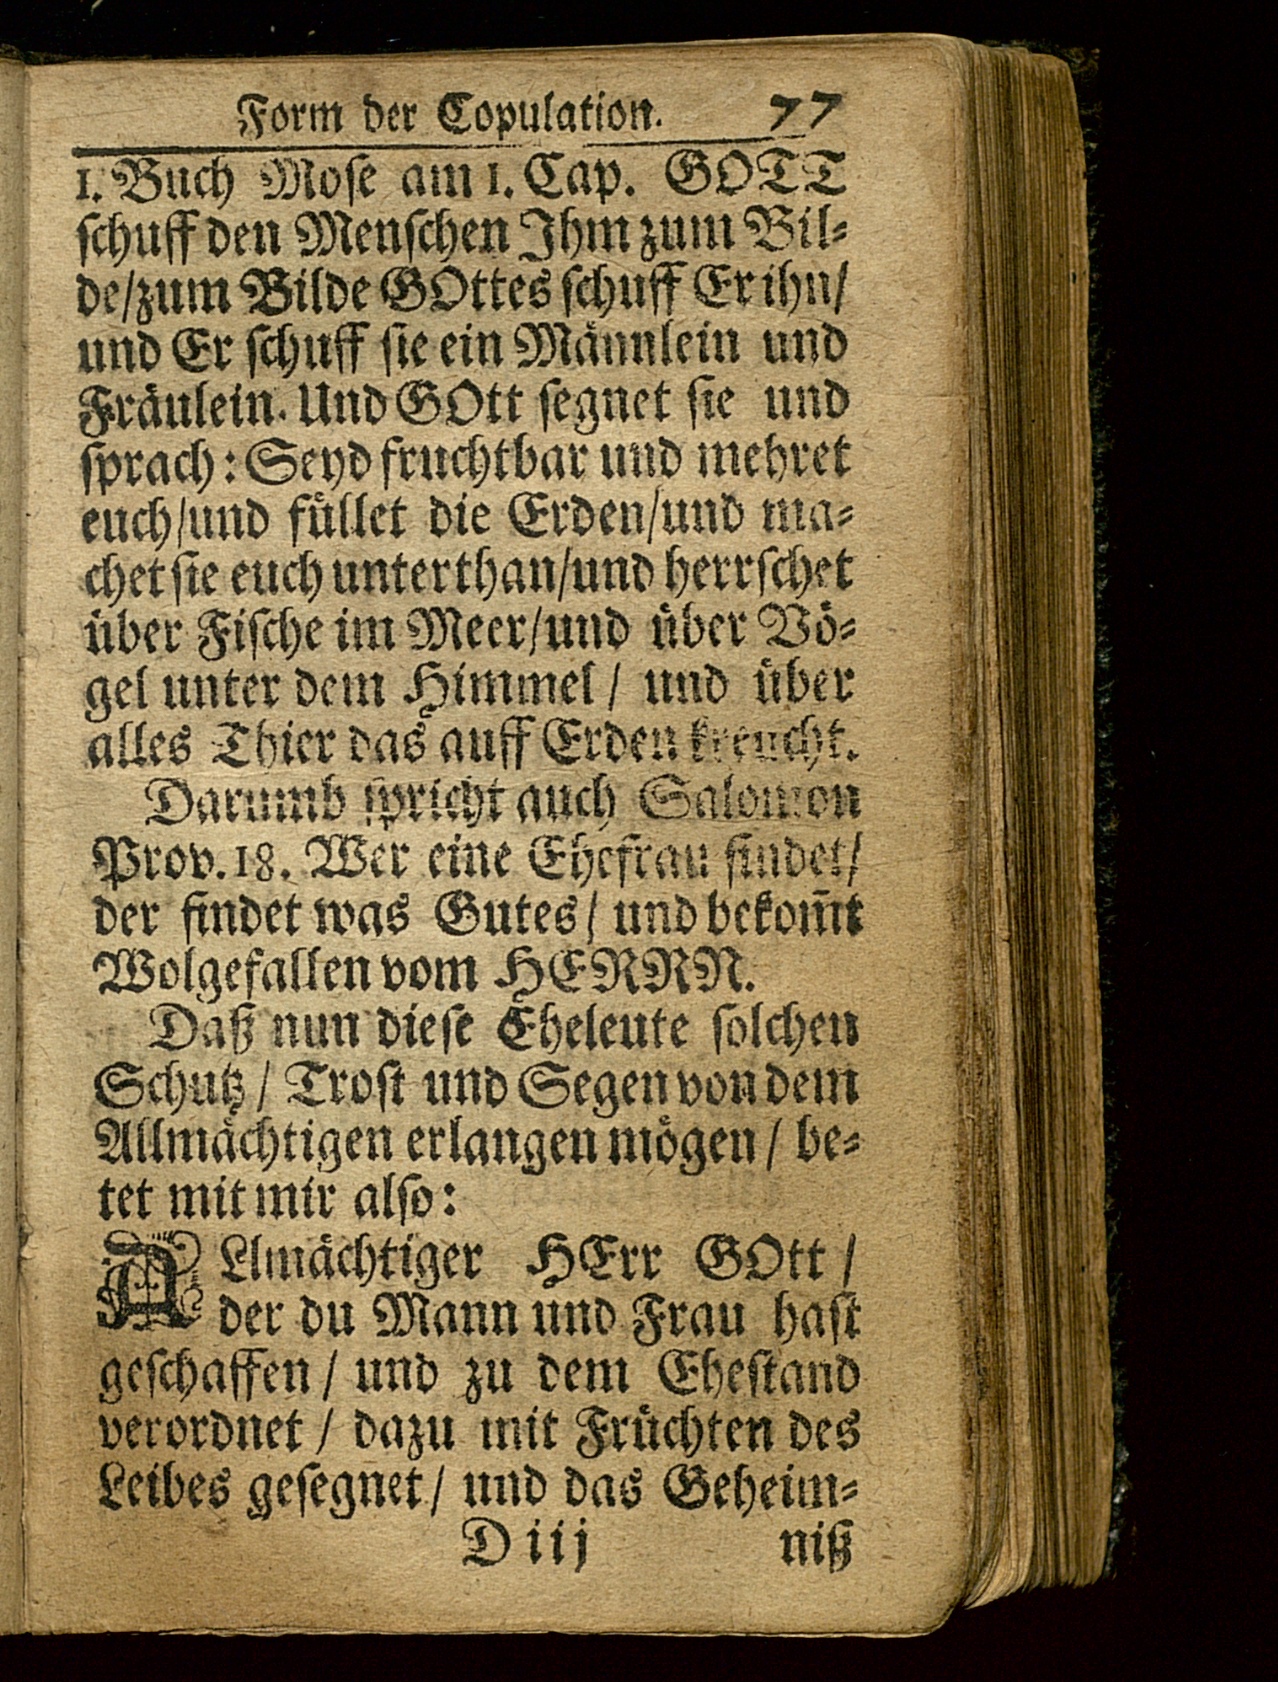 Form der Copulation. 77
1. Buch Mose am 1. Cap. GOTT
schuff den Menschen Ihm zum Bil-
de/zum Bilde GOttes schuff Er ihn/
und Er schuff sie ein Männlein und
Fräulein. Und GOtt segnet sie und
sprach: Seyd fruchtbar und mehret
euch/und füllet die Erden/und ma-
chet sie euch unterthan/und herrschet
über Fische im Meer/und über Vö-
gel unter dem Himmel/ und über
alles Thier das auff Erden kreucht.
Darumb spricht auch Salomon
Prov. 18. Wer eine Ehefrau findet/
der findet was Gutes/ und bekom̃t
Wolgefallen vom HERRN.
Daß nun diese Eheleute solchen
Schutz/ Trost und Segen von dem
Allmächtigen erlangen mögen/ be-
tet mit mir also:
ALlmächtiger HErr GOtt/
der du Mann und Frau hast
geschaffen/ und zu dem Ehestand
verordnet/ dazu mit Früchten des
Leibes gesegnet/ und das Geheim-
D iij niß